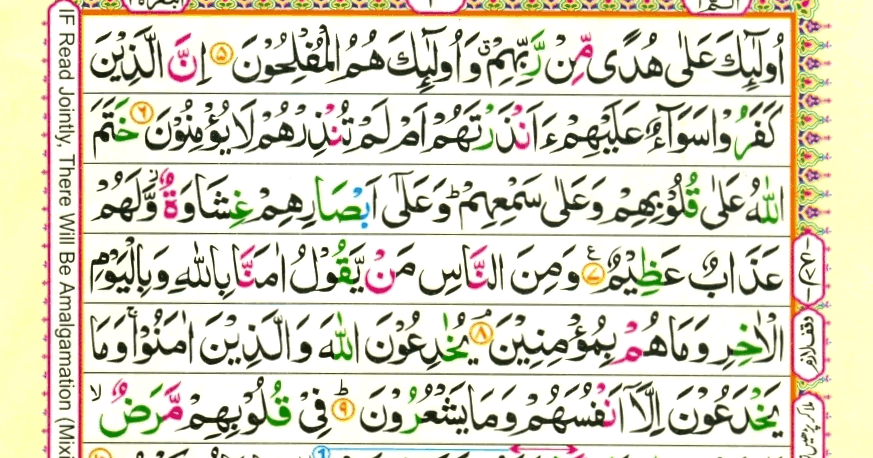 اُولٰٓئِكَ عَلٰى هُدًى مِّنْ رَّبِّهِمْ ۗ وَاُولٰٓئِكَ هُمُ الْمُفْلِحُوْنَ ۵ اِنَّ الَّذِيْنَ
كَفَرُوْا سَوَآءٌ عَلَيْهِمْ ءَاَنْذَرْتَهُمْ اَمْ لَمْ تُنْذِرْهُمْ لَا يُؤْمِنُوْنَ ۶ خَتَمَ
اللّٰهُ عَلٰى قُلُوْبِهِمْ وَعَلٰى سَمْعِهِمْ ؕ وَعَلٰٓى اَبْصَارِهِمْ غِشَاوَةٌ ۫ وَّلَهُمْ
عَذَابٌ عَظِيْمٌ ۷ ع وَمِنَ النَّاسِ مَنْ يَّقُوْلُ اٰمَنَّا بِاللّٰهِ وَبِالْيَوْمِ
الْاٰخِرِ وَمَا هُمْ بِمُؤْمِنِيْنَ ۘ ۸ يُخٰدِعُوْنَ اللّٰهَ وَالَّذِيْنَ اٰمَنُوْا ۚ وَمَا
يَخْدَعُوْنَ اِلَّاۤ اَنْفُسَهُمْ وَمَا يَشْعُرُوْنَ ؕ ۹ فِيْ قُلُوْبِهِمْ مَّرَضٌ ۙ
IF Read Jointly, There Will Be Amalgamation